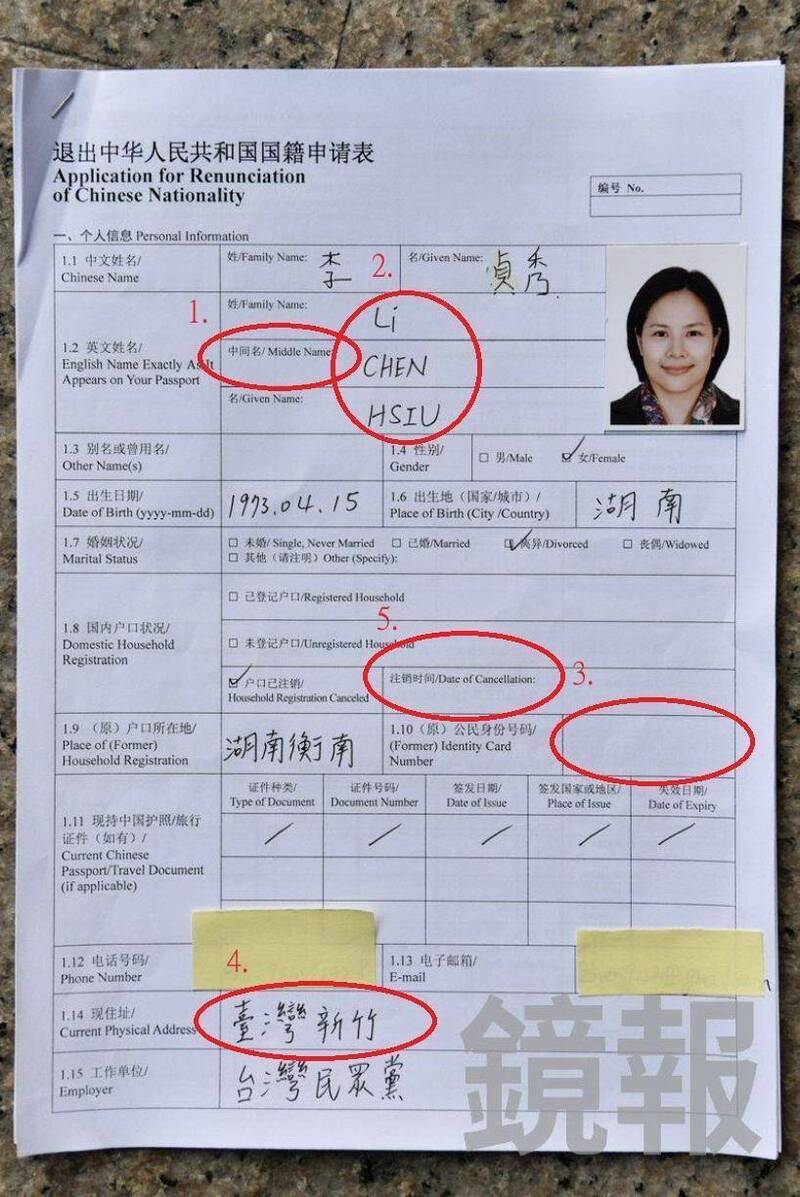 退出中华人民共和国国籍申请表
Application for Renunciation
of Chinese Nationality
编号 No.
一、个人信息 Personal Information
1.1 中文姓名/
Chinese Name
姓/Family Name: 李
2.
名/Given Name: 貞秀
1.
1.2 英文姓名/
English Name Exactly As It
Appears on Your Passport
姓/Family Name: Li
中间名/ Middle Name: CHEN
名/Given Name: HSIU
1.3 别名或曾用名/
Other Name(s)
1.4 性别/
Gender
男/Male
女/Female
1.5 出生日期/
Date of Birth (yyyy-mm-dd)
1973.04.15
1.6 出生地（国家/城市）/
Place of Birth (City /Country)
湖南
1.7 婚姻状况/
Marital Status
未婚/ Single, Never Married
已婚/Married
离异/Divorced
丧偶/Widowed
其他（请注明）Other (Specify):
1.8 国内户口状况/
Domestic Household
Registration
已登记户口/Registered Household
5.
未登记户口/Unregistered Household
户口已注销/
Household Registration Canceled
注销时间/Date of Cancellation:
3.
1.9 （原）户口所在地/
Place of (Former)
Household Registration
湖南衡南
1.10（原）公民身份号码/
(Former) Identity Card
Number
1.11 现持中国护照/旅行
证件（如有）/
Current Chinese
Passport/Travel Document
(if applicable)
证件种类/
Type of Document
证件号码/
Document Number
签发日期/
Date of Issue
签发国家或地区/
Place of Issue
失效日期/
Date of Expiry
1.12 电话号码/
Phone Number
1.13 电子邮箱/
E-mail
4.
1.14 现住址/
Current Physical Address
臺灣新竹
1.15 工作单位/
Employer
台灣民眾黨
鏡報